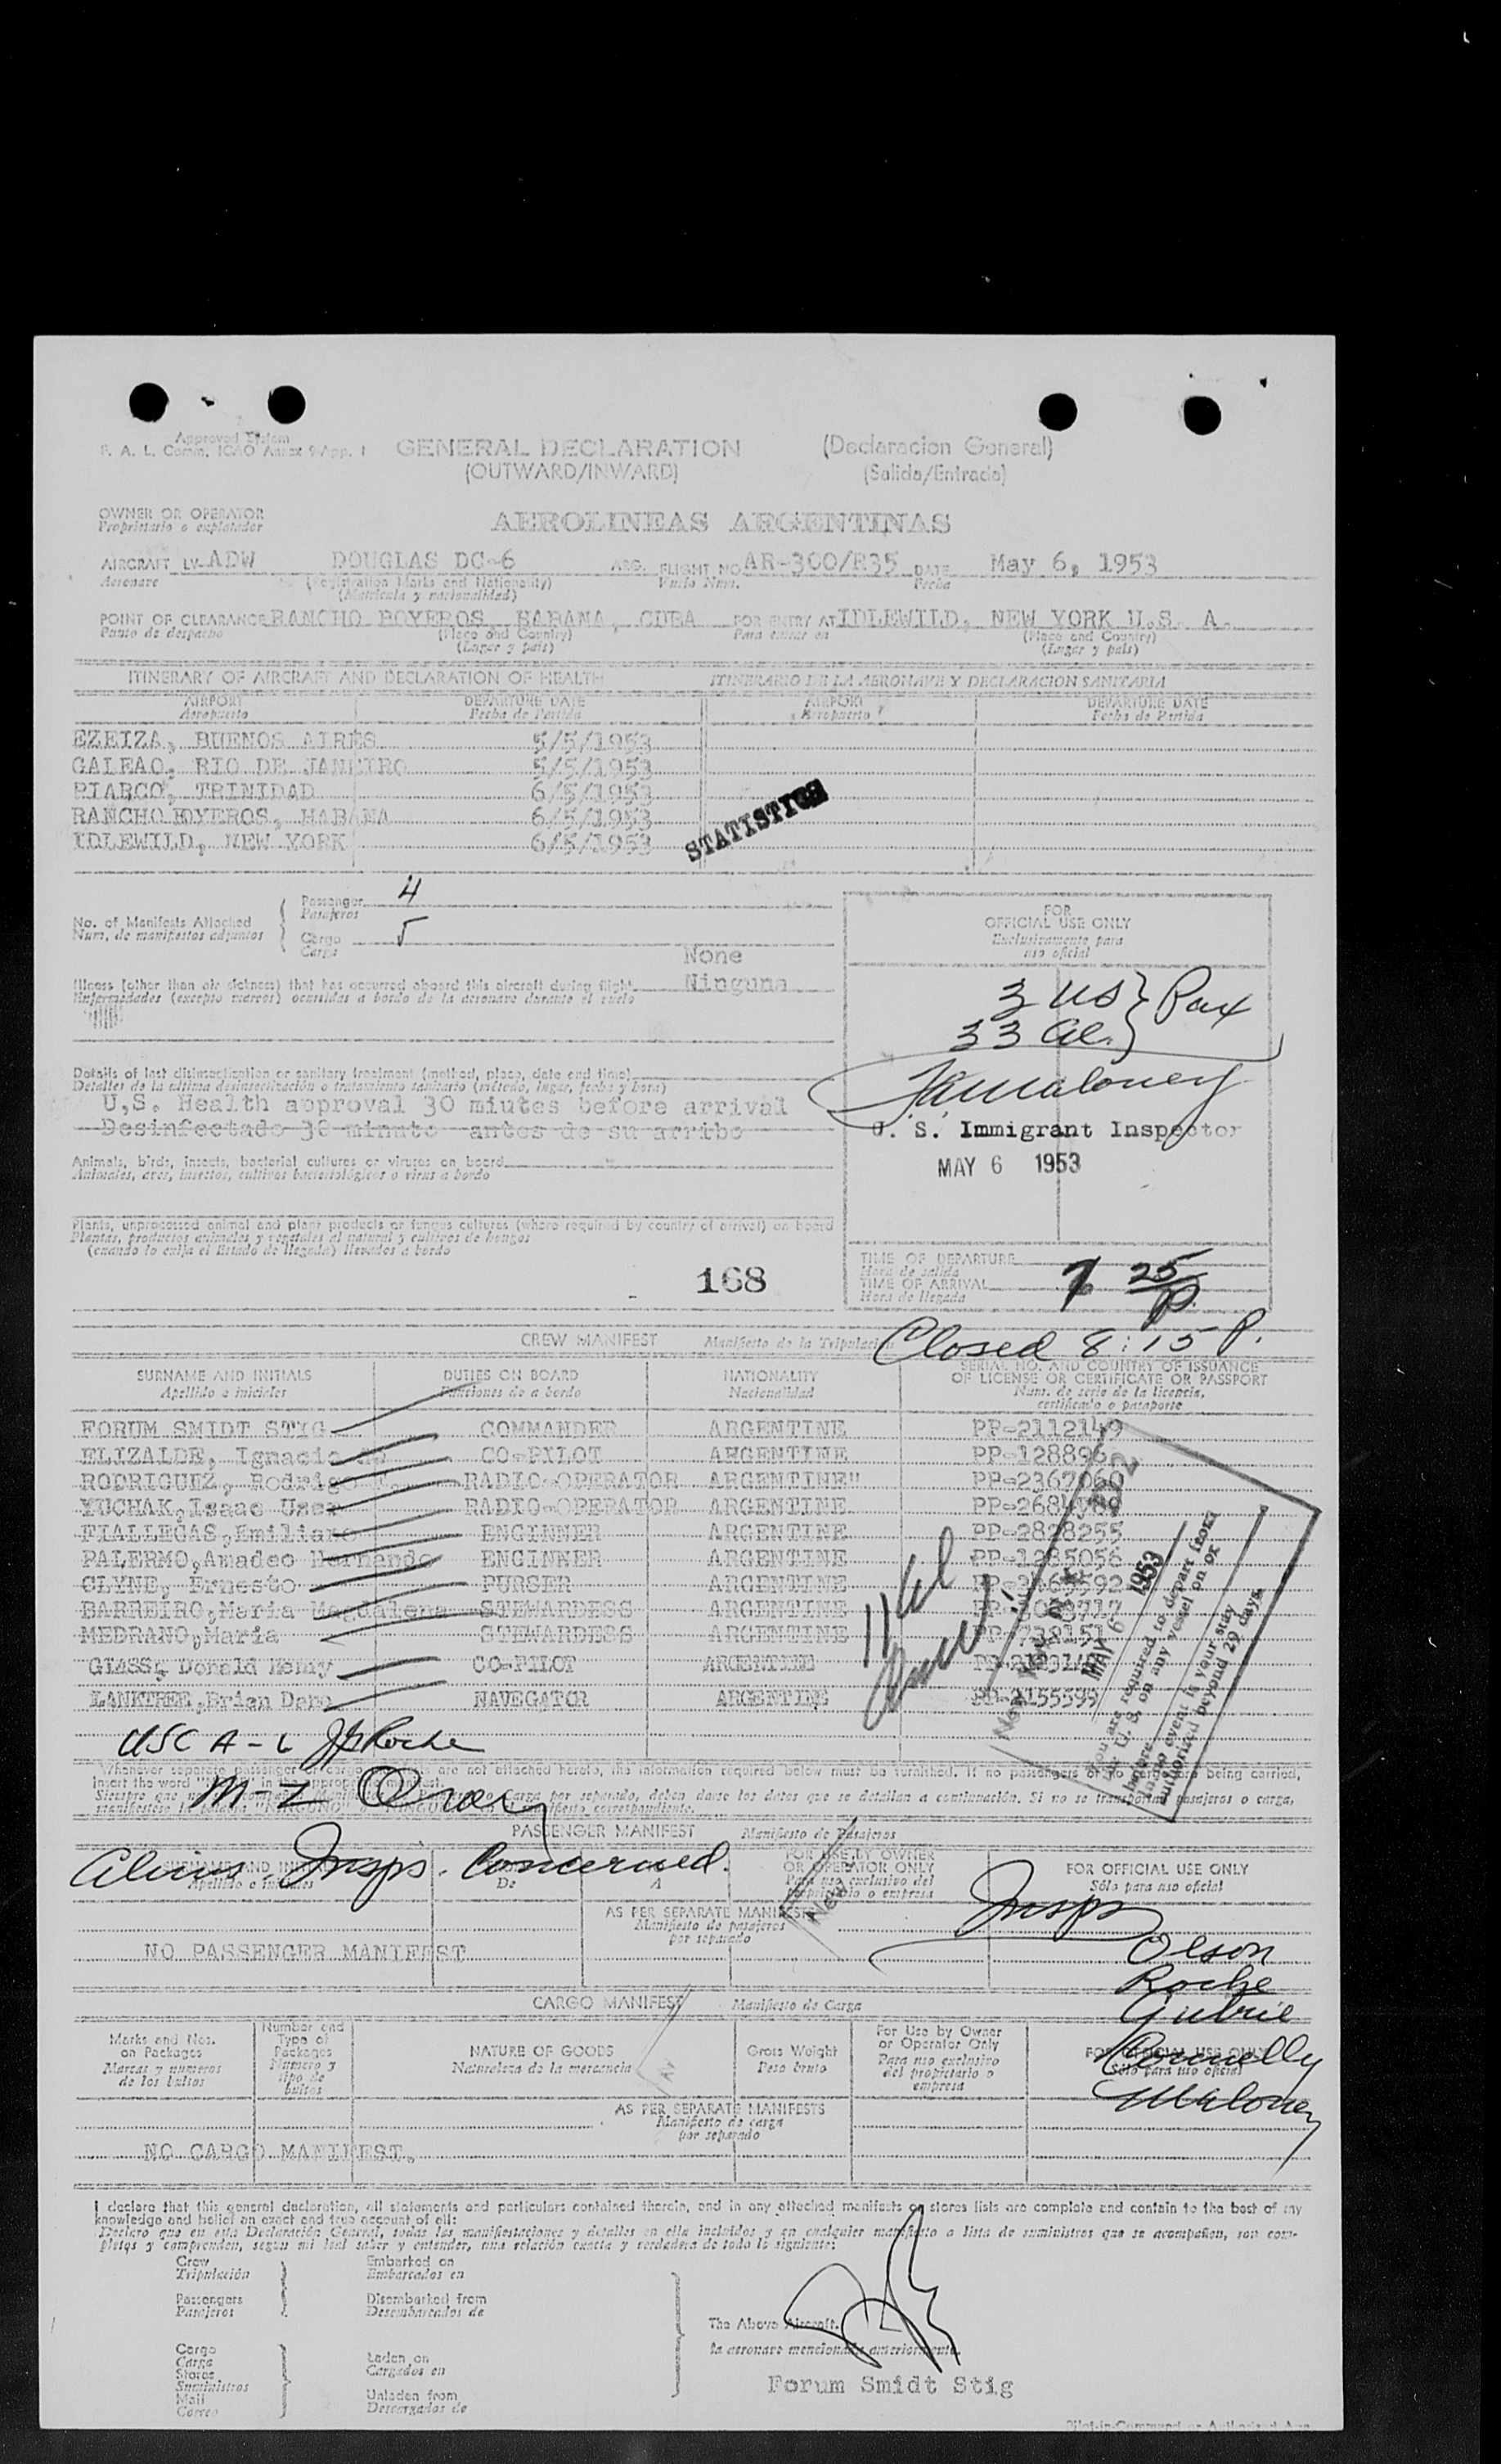 Approved System
F. A. L. Comm. ICAO Annex 9 App. 1
GENERAL DECLARATION (Declaracion General)
(OUTWARD/INWARD) (Salida/Entrada)
OWNER OR OPERATOR
Proprietario o explotador
AEROLINEAS ARGENTINAS
AIRCRAFT LV-ADW DOUGLAS DC-6 ARG. FLIGHT NO AR-300/R35 DATE May 6, 1953
Aeronave (Registration Marks and Nationality) Vuelo Num. Fecha
(Matricula y nacionalidad)
POINT OF CLEARANCE RANCHO BOYEROS, HABANA, CUBA FOR ENTRY AT IDLEWILD, NEW YORK U.S. A.
Punto de despacho (Place and Country) Para entrar en (Place and Country)
(Lugar y pais) (Lugar y pais)
ITINERARY OF AIRCRAFT AND DECLARATION OF HEALTH ITINERARIO DE LA AERONAVE Y DECLARACION SANITARIA
AIRPORT DEPARTURE DATE AIRPORT DEPARTURE DATE
Aeropuerto Fecha de Partida Aeropuerto Fecha de Partida
EZEIZA, BUENOS AIRES 5/5/1953
GALEAO, RIO DE JANEIRO 5/5/1953
PIARCO, TRINIDAD 6/5/1953
RANCHO BOYEROS, HABANA 6/5/1953
IDLEWILD, NEW YORK 6/5/1953
STATISTICS
No. of Manifests Attached
Num. de manifiestos adjuntos
Passenger 4
Pasajeros
Cargo 5
Carga
FOR
OFFICIAL USE ONLY
Exclusivamente para
uso oficial
None
Illness (other than air sickness) that has occurred aboard this aircraft during flight Ninguna
Enfermedades (excepto mareos) ocurridas a bordo de la aeronave durante el vuelo
3 US } Pax
33 Al.
Maloney
U. S. Immigrant Inspector
MAY 6 1953
Details of last disinsectization or sanitary treatment (method, place, date and time)
Detalles de la ultima desinsectización o tratamiento sanitario (método, lugar, fecha y hora)
U,S. Health approval 30 miutes before arrival
Desinfectado 30 minuto antes de su arribo
Animals, birds, insects, bacterial cultures or viruses on board
Animales, aves, insectos, cultivos bacteriológicos o virus a bordo
Plants, unprocessed animal and plant products or fungus cultures (where required by country of arrival) on board
Plantas, productos animales y vegetales al natural y cultivos de hongos
(cuando lo exija el Estado de llegada) llevados a bordo
168
TIME OF DEPARTURE
Hora de salida
TIME OF ARRIVAL 7 25 P.
Hora de llegada
Closed 8:15 P.
CREW MANIFEST Manifiesto de la Tripulacion
SURNAME AND INITIALS DUTIES ON BOARD NATIONALITY SERIAL NO. AND COUNTRY OF ISSUANCE
OF LICENSE OR CERTIFICATE OR PASSPORT
Apellido e iniciales Funciones de a bordo Nacionalidad Num. de serie de la licencia,
certificado o pasaporte
FORUM SMIDT STIG COMMANDER ARGENTINE PP-2112149
ELIZALDE, Ignacio CO-PILOT ARGENTINE PP-128896
RODRIGUEZ, Rodrigo RADIO-OPERATOR ARGENTINE" PP-2367060
YUCHAK,Isaac User RADIO-OPERATOR ARGENTINE
FIALLEGAS,Emiliano ENGINNER ARGENTINE PP-2828255
PALERMO,Amadeo Hernando ENGINNER ARGENTINE PP-1235056
CLYNE, Ernesto PURSER ARGENTINE
BARREIRO,Maria Magdalena STEWARDESS ARGENTINE
MEDRANO,Maria STEWARDESS ARGENTINE
GLASS, Donald Henry CO-PILOT ARGENTINE
LANKTREE,Brian Dano NAVEGATOR ARGENTINE PP-2155599
New York
MAY 6 1953
You are required to depart from
the U. S. on any vessel on or
before
in no event is your stay
authorized beyond 29 days.
USC A-L Roche
Whenever separate passenger or cargo manifests are not attached hereto, the information required below must be furnished. If no passengers or no cargo are being carried,
M-Z
PASSENGER MANIFEST Manifiesto de Pasajeros
Aliens - Insps. Concerned.
Apellido e iniciales De A
FOR USE BY OWNER
OR OPERATOR ONLY
Para uso exclusivo del
propietario o empresa
FOR OFFICIAL USE ONLY
Sólo para uso oficial
AS PER SEPARATE MANIFESTS
Manifiesto de pasajeros
por separado
New
NO PASSENGER MANIFEST
Insps
Olson
Roche
Guthrie
Connelly
Maloney
CARGO MANIFEST Manifiesto de Carga
Marks and Nos.
on Packages
Marcas y números
de los bultos
Number and
Type of
Packages
Numero y
tipo de
bultos
NATURE OF GOODS
Naturaleza de la mercancia
Gross Weight
Peso bruto
For Use by Owner
or Operator Only
Para uso exclusivo
del propietario o
empresa
FOR OFFICIAL USE ONLY
Sólo para uso oficial
AS PER SEPARATE MANIFESTS
Manifiesto de carga
por separado
NO CARGO MANIFEST.
I declare that this general declaration, all statements and particulars contained therein, and in any attached manifests or stores lists are complete and contain to the best of my
knowledge and belief an exact and true account of all:
Declaro que en esta Declaración General, todas las manifestaciones y detalles en ella incluídos y en cualquier manifiesto o lista de suministros que se acompañen, son com-
pletos y comprenden, segun mi leal saber y entender, una relación exacta y verdadera de todo lo siguiente:
Crew
Tripulación
Passengers
Pasajeros
Embarked on
Embarcados en
Disembarked from
Desembarcados de
Cargo
Carga
Stores
Suministros
Mail
Correo
Laden on
Cargados en
Unladen from
Descargados de
The Above Aircraft.
la aeronave mencionada anteriormente.
Forum Smidt Stig
Pilot-in-Command or Authorized Agent